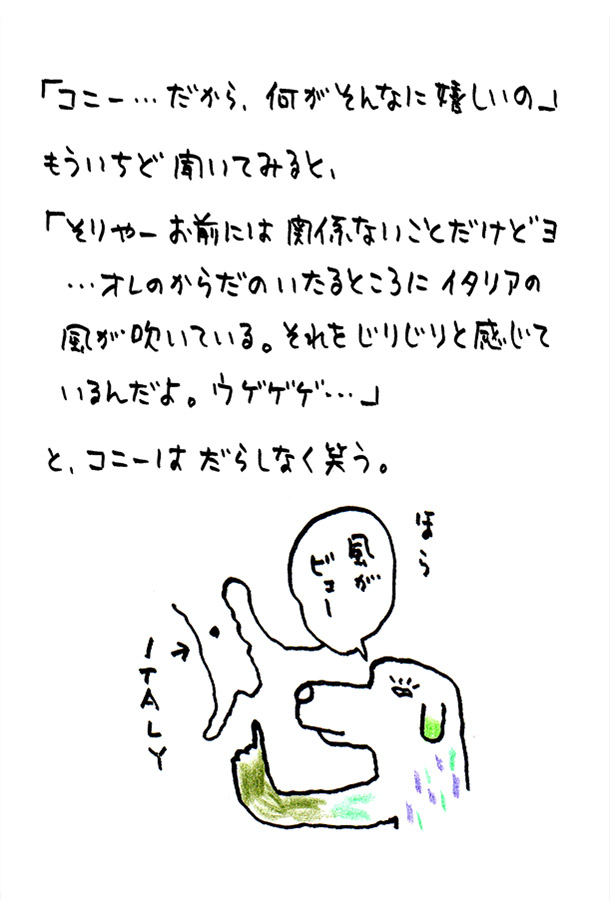 「コニー…だから、何がそんなに嬉しいの」
もういちど聞いてみると、
「そりゃーお前には関係ないごとだけどヨ
…オレのからだのいたるところにイタリアの
風が吹いている。それをじりじりと感じて
いるんだよ。ウゲゲゲ…」
と、コニーはだらしなく笑う。
ほら
風が
ビュー
ITALY